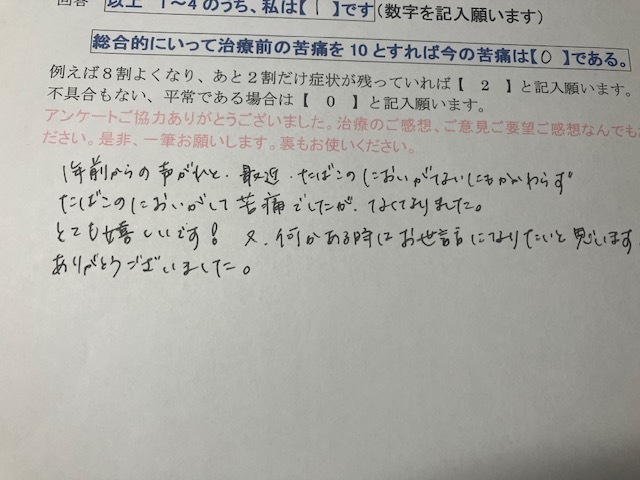 回答 以上 1～4のうち、私は【 1 】です(数字を記入願います)
総合的にいって治療前の苦痛を10とすれば今の苦痛は【 0 】である。
例えば8割よくなり、あと2割だけ症状が残っていれば【 2 】と記入願います。
不具合もない、平常である場合は【 0 】と記入願います。
アンケートご協力ありがとうございました。治療のご感想、ご意見ご要望ご感想なんでも
ださい。是非、一筆お願いします。裏もお使いください。
1年前からの声がれと、最近、たばこのにおいがないにもかかわらず
たばこのにおいがして苦痛でしたが、なくなりました。
とても嬉しいです! 又、何かある時にお世話になりたいと思います
ありがとうございました。